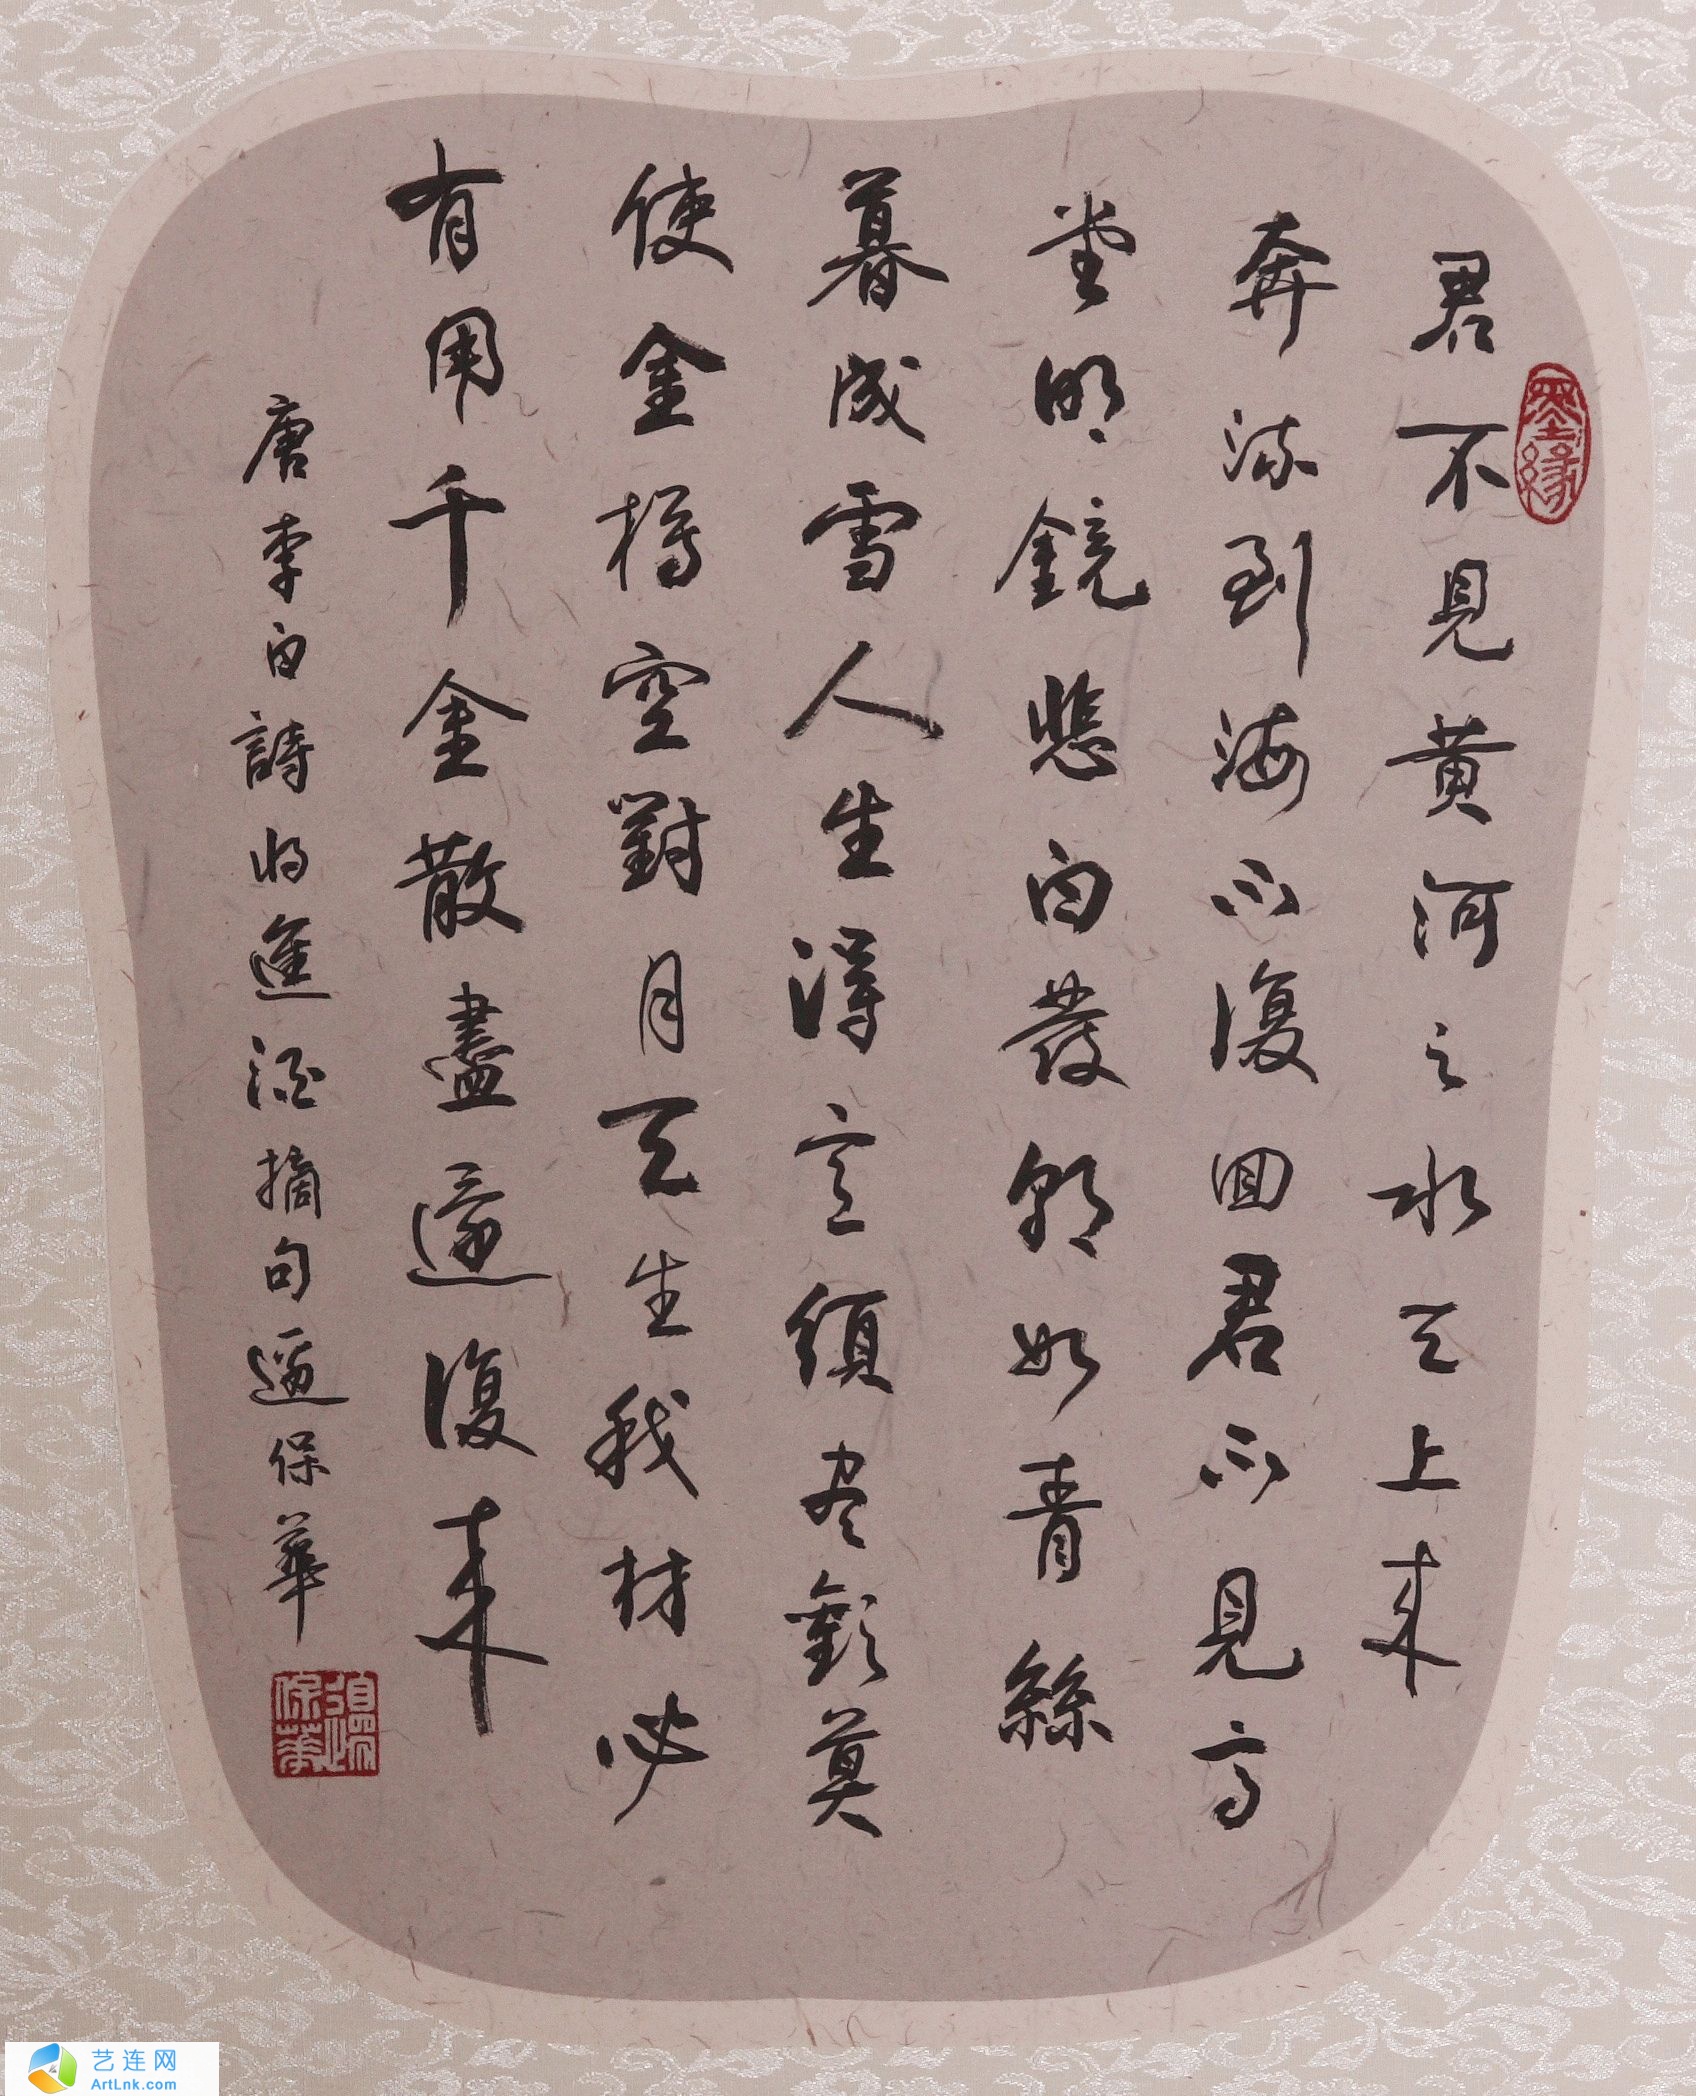 君不見黄河之水天上来
奔流到海不復回君不見高
堂明鏡悲白發朝如青絲
暮成雪人生得意須尽歡莫
使金樽空對月天生我材必
有用千金散盡還復来
唐李白詩将進酒摘句邊保華
墨緣
邊保華
艺连网
ArtLnk.com